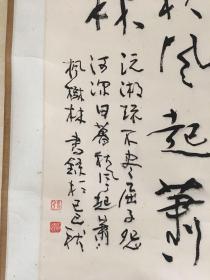 秋风起萧
林
沅湘流不尽屈子怨
何深日暮秋风起萧
枫树林 书录于己巳秋